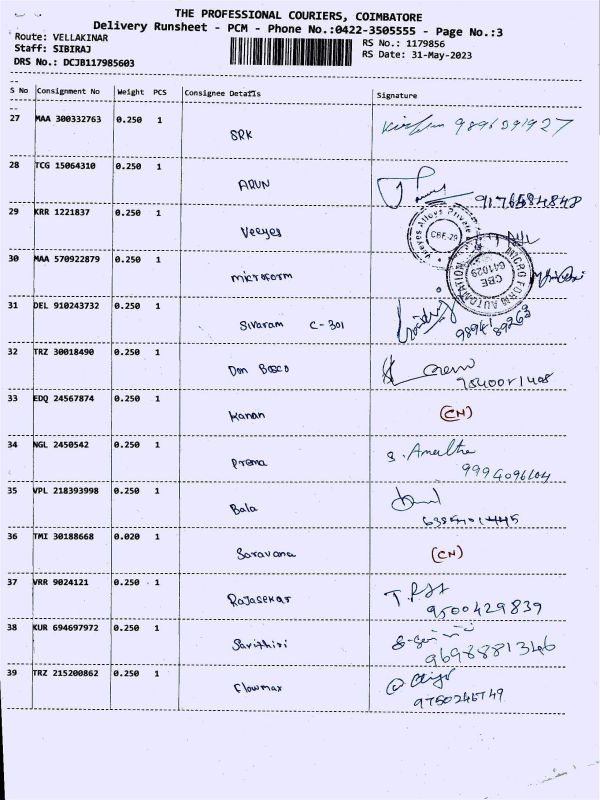 THE PROFESSIONAL COURIERS, COIMBATORE
Delivery Runsheet - PCM - Phone No.:0422-3505555 - Page No.:3
Route: VELLAKINAR
RS No.: 1179856
Staff: SIBIRAJ
RS Date: 31-May-2023
DRS No.: DCJB117985603
S No Consignment No Weight PCS Consignee Details Signature
27 MAA 300332763 0.250 1
SRK 9896391927
28 TCG 15064310 0.250 1
ARUN
29 KRR 1221837 0.250 1
Veeyes
CBE-29
30 MAA 570922879 0.250 1
microform
MICRO FORM AUTOMATION
CBE
641029
31 DEL 910243732 0.250 1
Sivaram C-301
9894189263
32 TRZ 30018490 0.250 1
Don Bosco
33 EDQ 24567874 0.250 1
Kanan (CN)
34 NGL 2450542 0.250 1
Prema S. Amutha
9994096104
35 VPL 218393998 0.250 1
Bala
36 TMI 30188668 0.020 1
Saravana (CN)
37 VRR 9024121 0.250 1
Rajasekar
9500429839
38 KUR 694697972 0.250 1
Savithiri
9698881346
39 TRZ 215200862 0.250 1
Flowmax